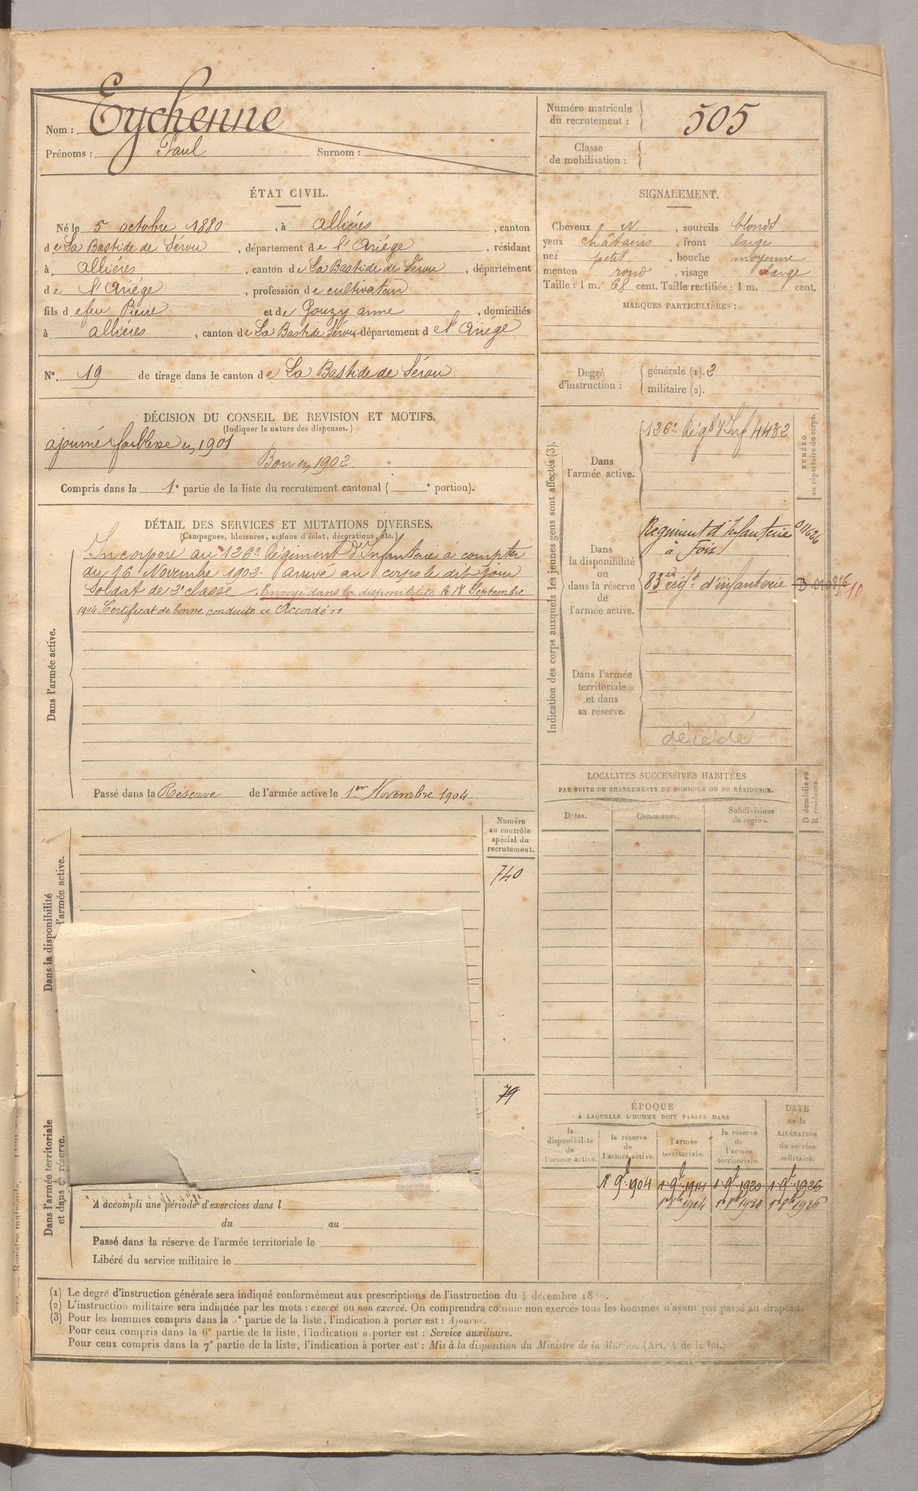 Nom : Eychenne
Prénoms : Paul Surnom :
Numéro matricule
du recrutement : 505
Classe
de mobilisation :
ÉTAT CIVIL.
Né le 5 octobre 1880, à Allières, canton
de La Bastide de Sérou, département de l'Ariège, résidant
à Allières, canton de La Bastide de Sérou, département
de l'Ariège, profession de cultivateur
fils de feu Pierre et de Gouzy anne, domiciliés
à Allières, canton de La Bastide de Sérou département de l'Ariège
N° 19 de tirage dans le canton de La Bastide de Sérou
SIGNALEMENT.
Cheveux , sourcils blonds
yeux châtains, front large
nez petit, bouche moyenne
menton rond, visage large
Taille : 1 m. 68 cent. Taille rectifiée : 1 m. cent.
MARQUES PARTICULIÈRES :
Degré
d'instruction :
générale (1). 3
militaire (2).
DÉCISION DU CONSEIL DE REVISION ET MOTIFS.
(Indiquer la nature des dispenses.)
ajourné faiblesse en 1901
Bon en 1902.
Compris dans la 1e partie de la liste du recrutement cantonal ( e portion).
DÉTAIL DES SERVICES ET MUTATIONS DIVERSES.
(Campagnes, blessures, actions d'éclat, décorations, etc.)
Incorporé au 126e Régiment d'Infanterie à compter
du 16 Novembre 1902. Arrivé au corps le dit jour
Soldat de 2e classe. Envoyé dans la disponibilité le 18 Septembre
1904. Certificat de bonne conduite Accordé
Dans l'armée active.
Passé dans la Réserve de l'armée active le 1er Novembre 1904
Indication des corps auxquels les jeunes gens sont affectés (3).
Dans
l'armée active.
126e Régt d'Inf 4432
NUMÉRO
au répertoire du corps.
Dans
la disponibilité
ou
dans la réserve
de
l'armée active.
Régiment d'Infanterie
à Foix
83e régt d'infanterie
Dans l'armée
territoriale
et dans
sa réserve.
décédé
LOCALITÉS SUCCESSIVES HABITÉES
PAR SUITE DE CHANGEMENTS DE DOMICILE OU DE RÉSIDENCE.
Dates. Communes. Subdivisions
de région.
D domicile ou
R résidence.
Numéro
au contrôle
spécial du
recrutement.
740
79
Dans la disponibilité
l'armée active.
Dans l'armée territoriale
et dans réserve.
A accompli une période d'exercices dans l
du au
Passé dans la réserve de l'armée territoriale le
Libéré du service militaire le
ÉPOQUE
À LAQUELLE L'HOMME DOIT PASSER DANS
DATE
de la
LIBÉRATION
du service
militaire.
la
disponibilité
de
l'armée active.
la réserve
de
l'armée active.
l'armée
territoriale.
la réserve
de
l'armée
territoriale.
1 9b 1904 1 9b 1914 1 9b 1920 1 9b 1926
(1) Le degré d'instruction générale sera indiqué conformément aux prescriptions de l'instruction du 4 décembre 1889.
(2) L'instruction militaire sera indiquée par les mots : exercé ou non exercé. On comprendra comme non exercés tous les hommes n'ayant pas passé au drapeau.
(3) Pour les hommes compris dans la 5e partie de la liste, l'indication à porter est : Ajourné.
Pour ceux compris dans la 6e partie de la liste, l'indication à porter est : Service auxiliaire.
Pour ceux compris dans la 7e partie de la liste, l'indication à porter est : Mis à la disposition du Ministre de la Marine. (Art. 4 de la loi.)